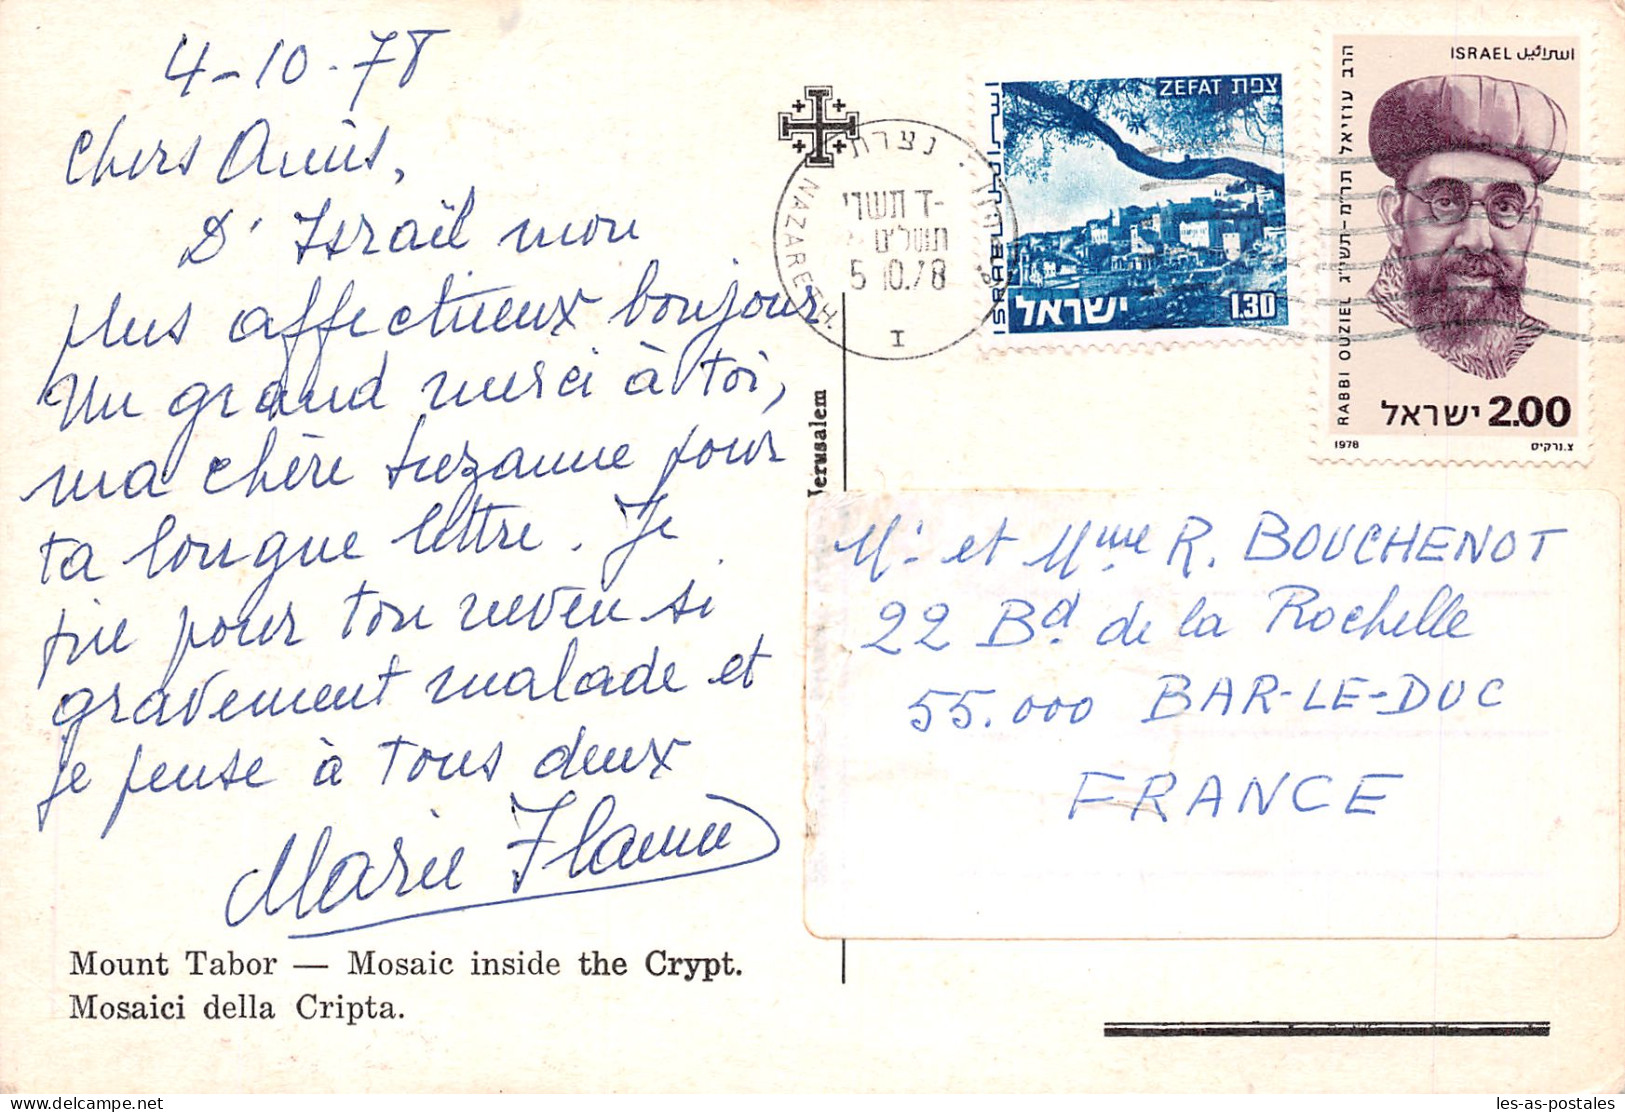 4-10-78
Chers Amis,
D'Israël mon
plus affectueux bonjour
Un grand merci à toi,
ma chère Suzanne pour
ta longue lettre. Je
prie pour ton neveu si
gravement malade et
je pense à tous deux
Marie
Mount Tabor — Mosaic inside the Crypt.
Mosaici della Cripta.
Jerusalem
נצרת
NAZARETH
ד תשרי-
תשל"ט
5.10.78
I
ZEFAT צפת
ISRAEL اسرائيل
ישראל 1.30
ISRAEL اسرائيل
הרב עוזיאל תר"מ-תשי"ג
RABBI OUZIEL
ישראל 2.00
1978
צ.נרקיס
Mr et Mme R. BOUCHENOT
22 Bd de la Rochelle
55.000 BAR-LE-DUC
FRANCE
les-as-postales